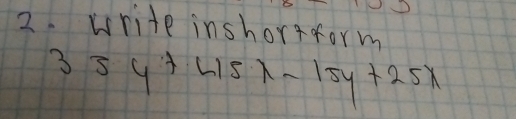 2. Write inshortform
35y + 45x - 15y + 25x